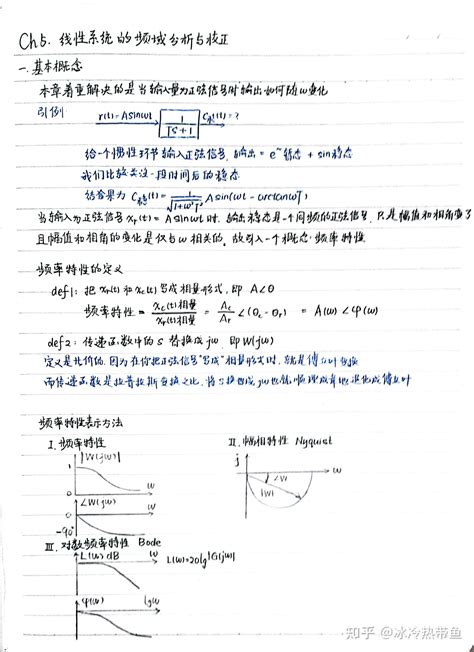 Ch5. 线性系统的频域分析与校正
一. 基本概念
本章着重解决的是当输入量为正弦信号时输出如何随ω变化
引例: r(t)=Asinωt 1/(Ts+1) C稳(t)=?
给一个惯性环节输入正弦信号, 输出 = e~暂态 + sin稳态
我们比较关注一段时间后的稳态
结果为 C稳(t)= 1/√(1+ω²T²) Asin(ωt - arctanωT)
当输入为正弦信号 xr(t)=Asinωt 时, 输出稳态是一个同频的正弦信号, 只是幅值和相角变了
且幅值和相角的变化是仅与ω相关的, 故引入一个概念: 频率特性
频率特性的定义
def1: 把 xr(t) 和 xc(t) 写成相量形式, 即 A∠θ
频率特性 = xc(t)相量/xr(t)相量 = Ac/Ar ∠(θc-θr) = A(ω)∠φ(ω)
def2: 传递函数中的 s 替换成 jω, 即 W(jω)
定义是等价的, 因为在你把正弦信号"写成"相量形式时, 就是傅立叶变换
而传递函数是拉普拉斯变换之比, 将s换成jω也就顺理成章地退化成傅立叶
频率特性表示方法
I. 频率特性
|W(jω)|
1
0
ω
∠W(jω)
0
ω
-90°
II. 幅相特性 Nyquist
j
ω
∠W
|W|
III. 对数频率特性 Bode
L(ω) dB
ω
L(ω)=20lg|G(jω)|
φ(ω)
lgω
知乎 @冰冷热带鱼